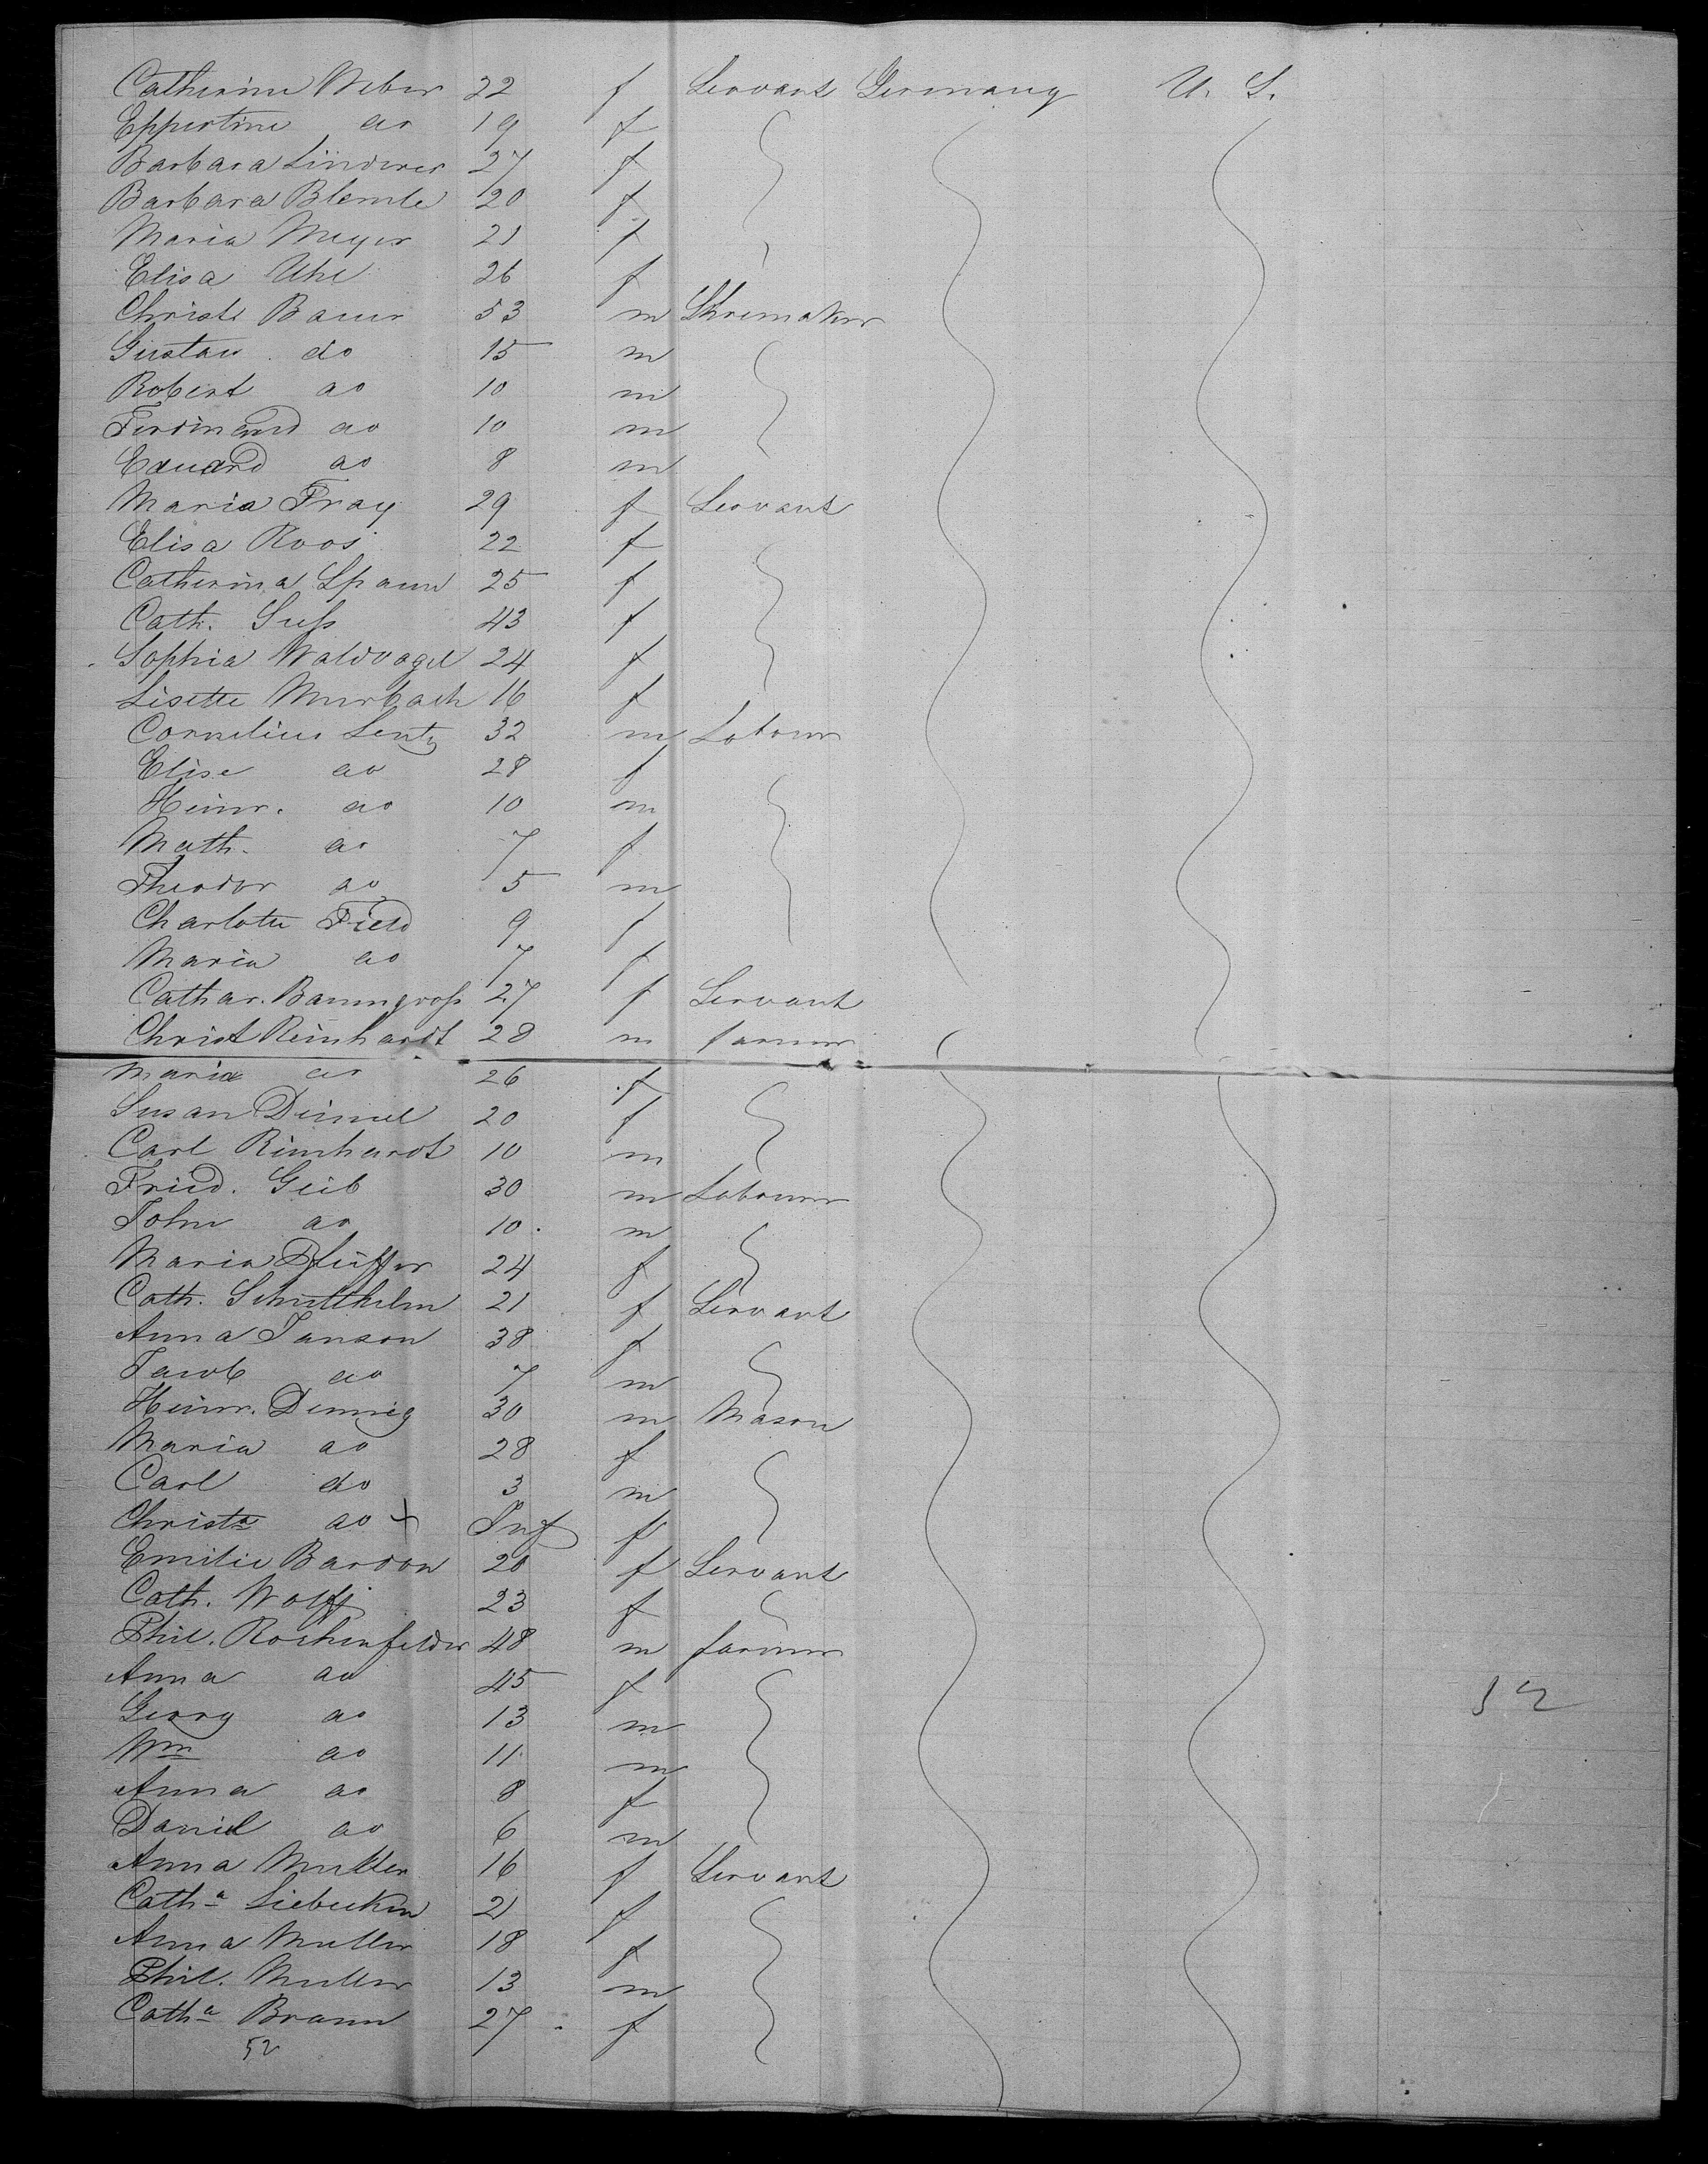 Catherine Weber 22 f Servant Germany U. S.
Eppertine do 19 f
Barbara Linderer 27 f
Barbara Blemle 20 f
Maria Meyer 21 f
Elisa Uhl 26 f
Christ Bauer 53 m Shoemaker
Gustav do 15 m
Robert do 10 m
Ferdinand do 10 m
Eduard do 8 m
Maria Fray 29 f Servant
Elisa Roos 22 f
Catherina Spaun 25 f
Cath. Suss 43 f
Sophia Waldvogel 24 f
Lisette Murbach 16 f
Cornelius Lentz 32 m Labour
Elise do 28 f
Heinr. do 10 m
Math. do 7 f
Theodor do 5 m
Charlotte Field 9 f
Maria do 7 f
Cathar. Baumgross 27 f Servant
Christ Reinhardt 28 m farmer
Maria do 26 f
Susan Dimmel 20 f
Carl Reinhardt 10 m
Fried. Geib 30 m Labourer
John do 10 m
Maria Pfeiffer 24 f
Cath. 21 f Servant
Anna Janson 38 f
Jacob do 7 m
Heinr. Dennig 30 m Mason
Maria do 28 f
Carl do 3 m
Christa do + Inf f
Emilie Bardon 20 f Servant
Cath. Wolff 23 f
Phil. Rochenfelder 48 m farmer
Anna do 45 f
Georg do 13 m
52
Wm do 11 m
Anna do 8 f
Daniel do 6 m
Anna Muller 16 f Servant
Catha Liebecken 21 f
Anna Muller 18 f
Phil. Muller 13 m
Catha Braun 27 f
52